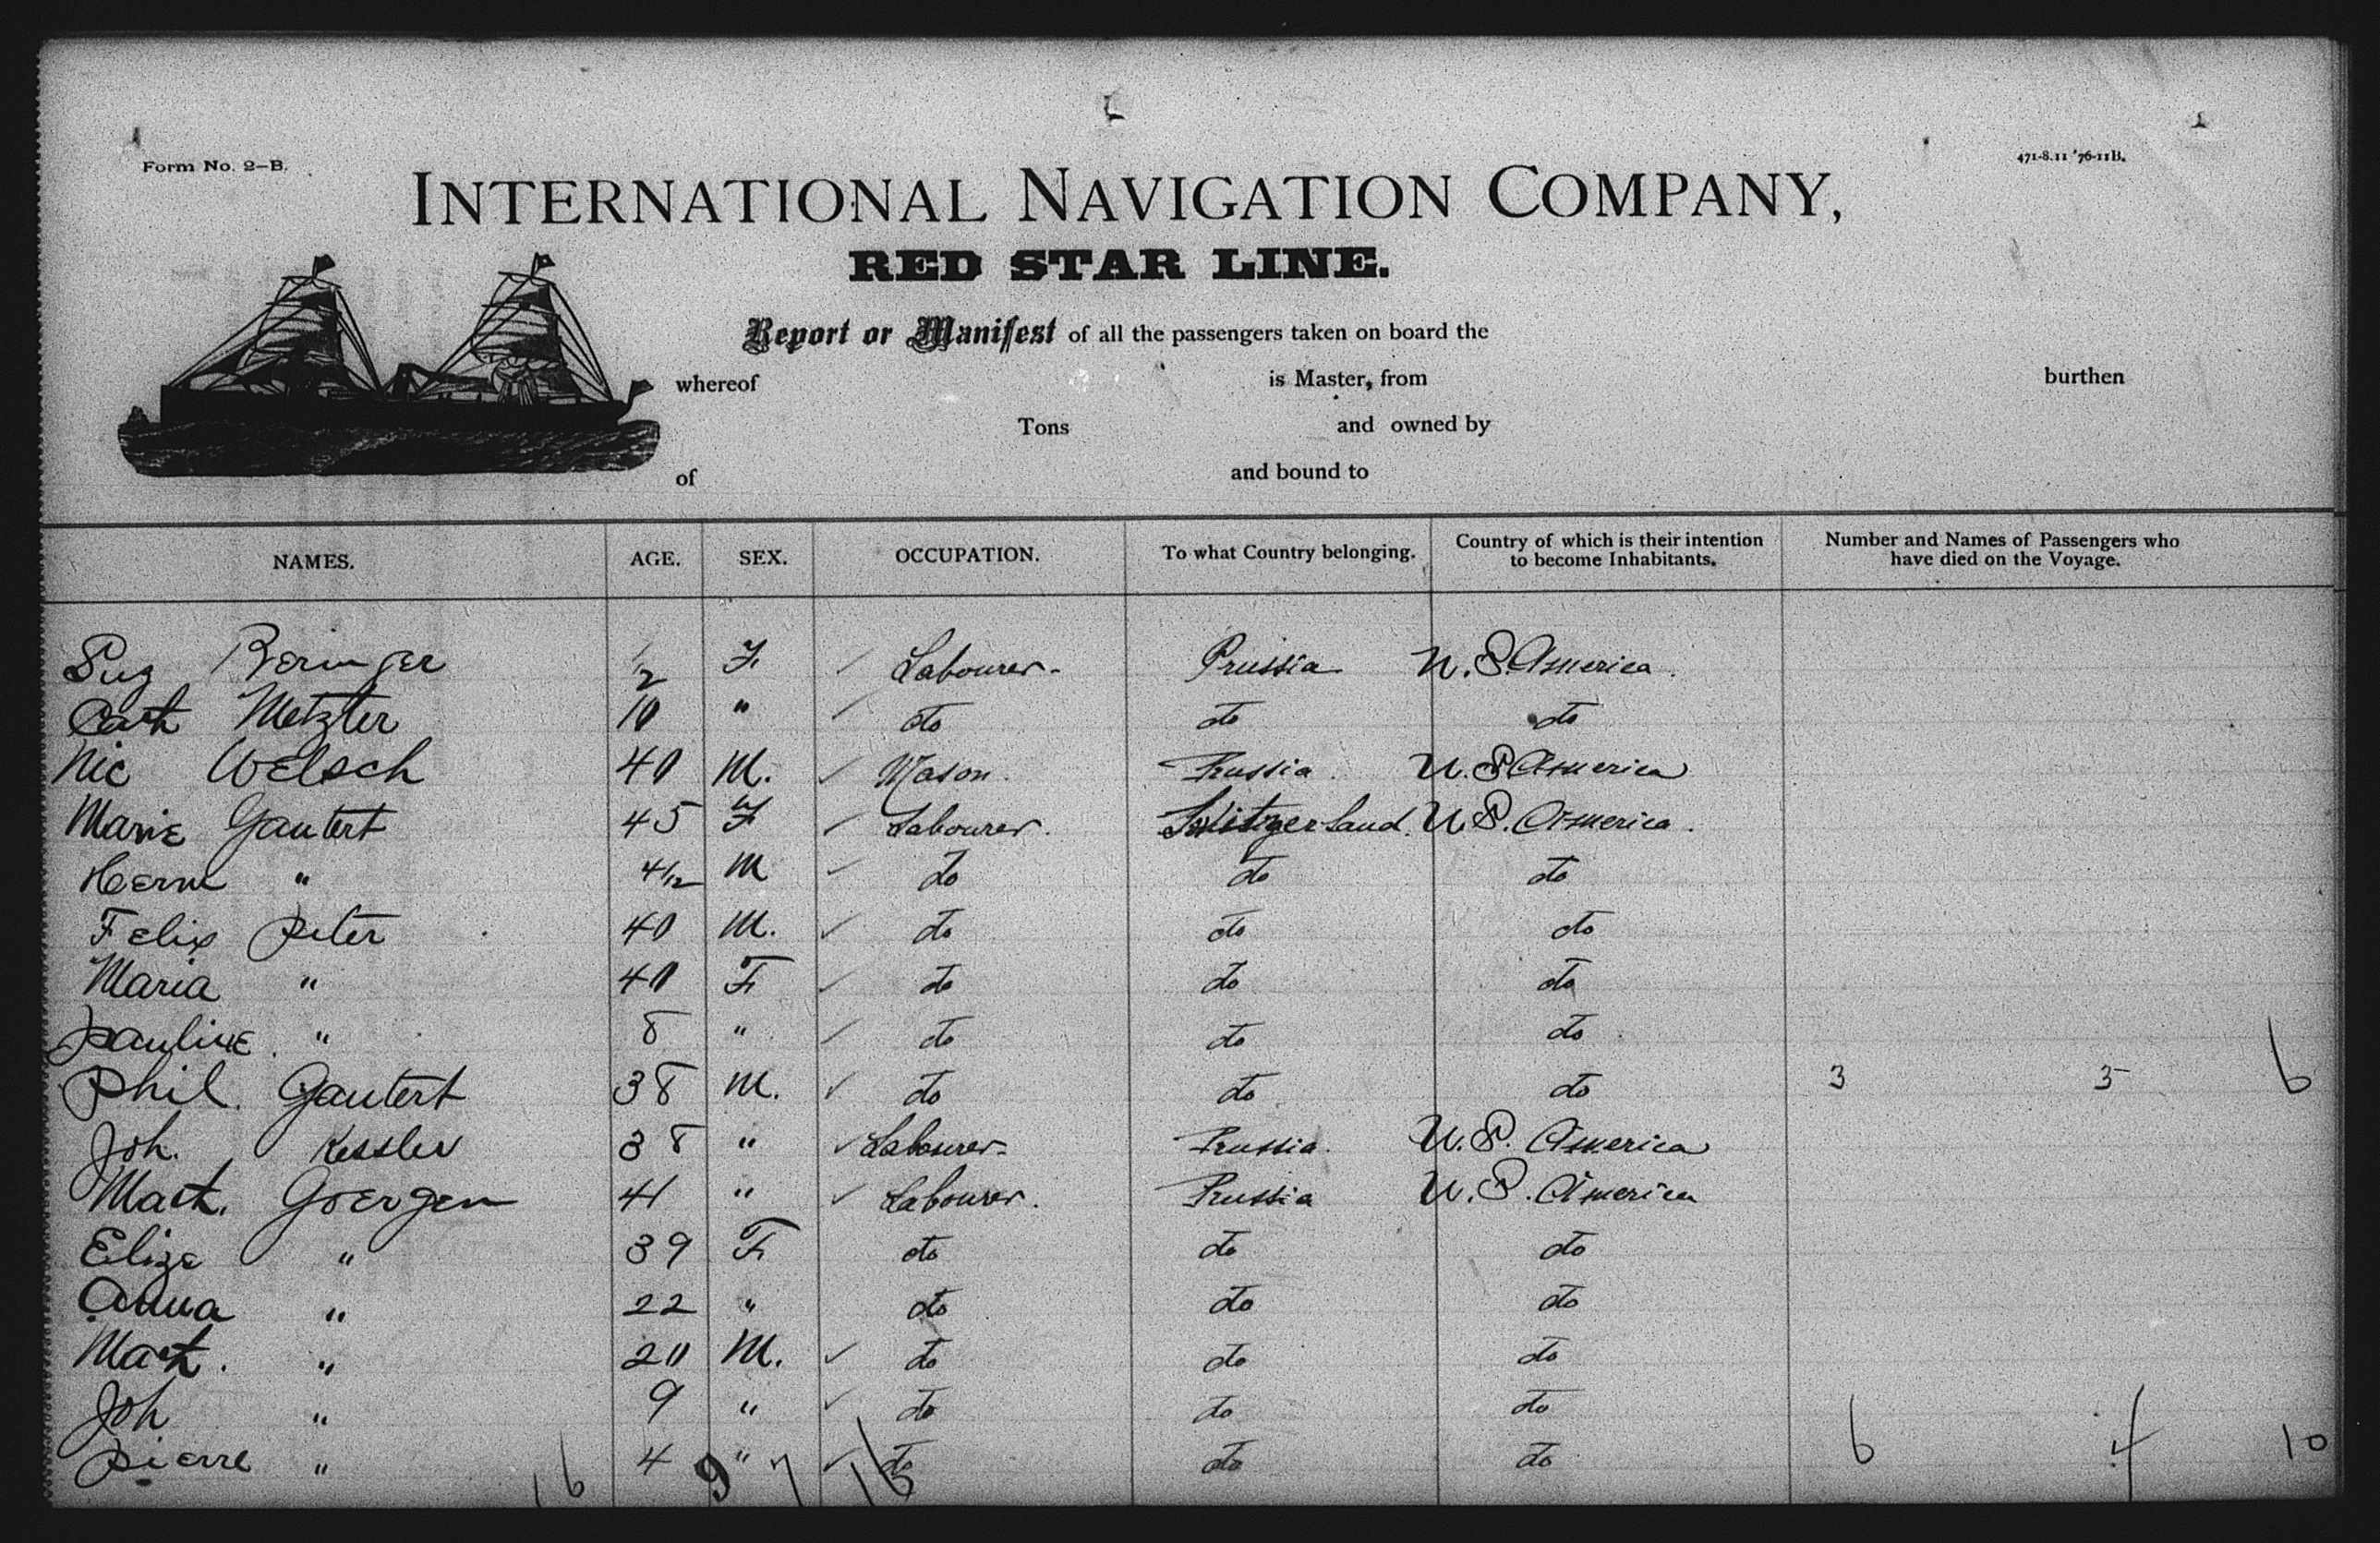 Form No. 2—B.
471-8.11 '76-11B.
INTERNATIONAL NAVIGATION COMPANY,
RED STAR LINE.
Report or Manifest of all the passengers taken on board the
whereof is Master, from burthen
Tons and owned by
of and bound to
NAMES. AGE. SEX. OCCUPATION. To what Country belonging. Country of which is their intention to become Inhabitants. Number and Names of Passengers who have died on the Voyage.
Beringer 1/2 F. Labourer. Prussia U.S. America.
Cath Metzler 10 " do do do
Nic Welsch 40 M. Mason. Prussia. U.S. America
Marie Gautert 45 F Labourer. Switzerland. U.S. America.
Herm " 4/12 M do do do
Felix Peter 40 M. do do do
Maria " 40 F do do do
Pauline. " 8 " do do do
Phil. Gautert 38 M. do do do 3 3 6
Joh. Kessler 38 " Labourer Prussia. U.S. America
Mart. Goergen 41 " Labourer. Prussia U.S. America
Elize " 39 F. do do do
Anna " 22 " do do do
Mart. " 20 M. do do do
Joh " 9 " do do do
Pierre " 4 " do do do 6 4 10
16 9 7 16